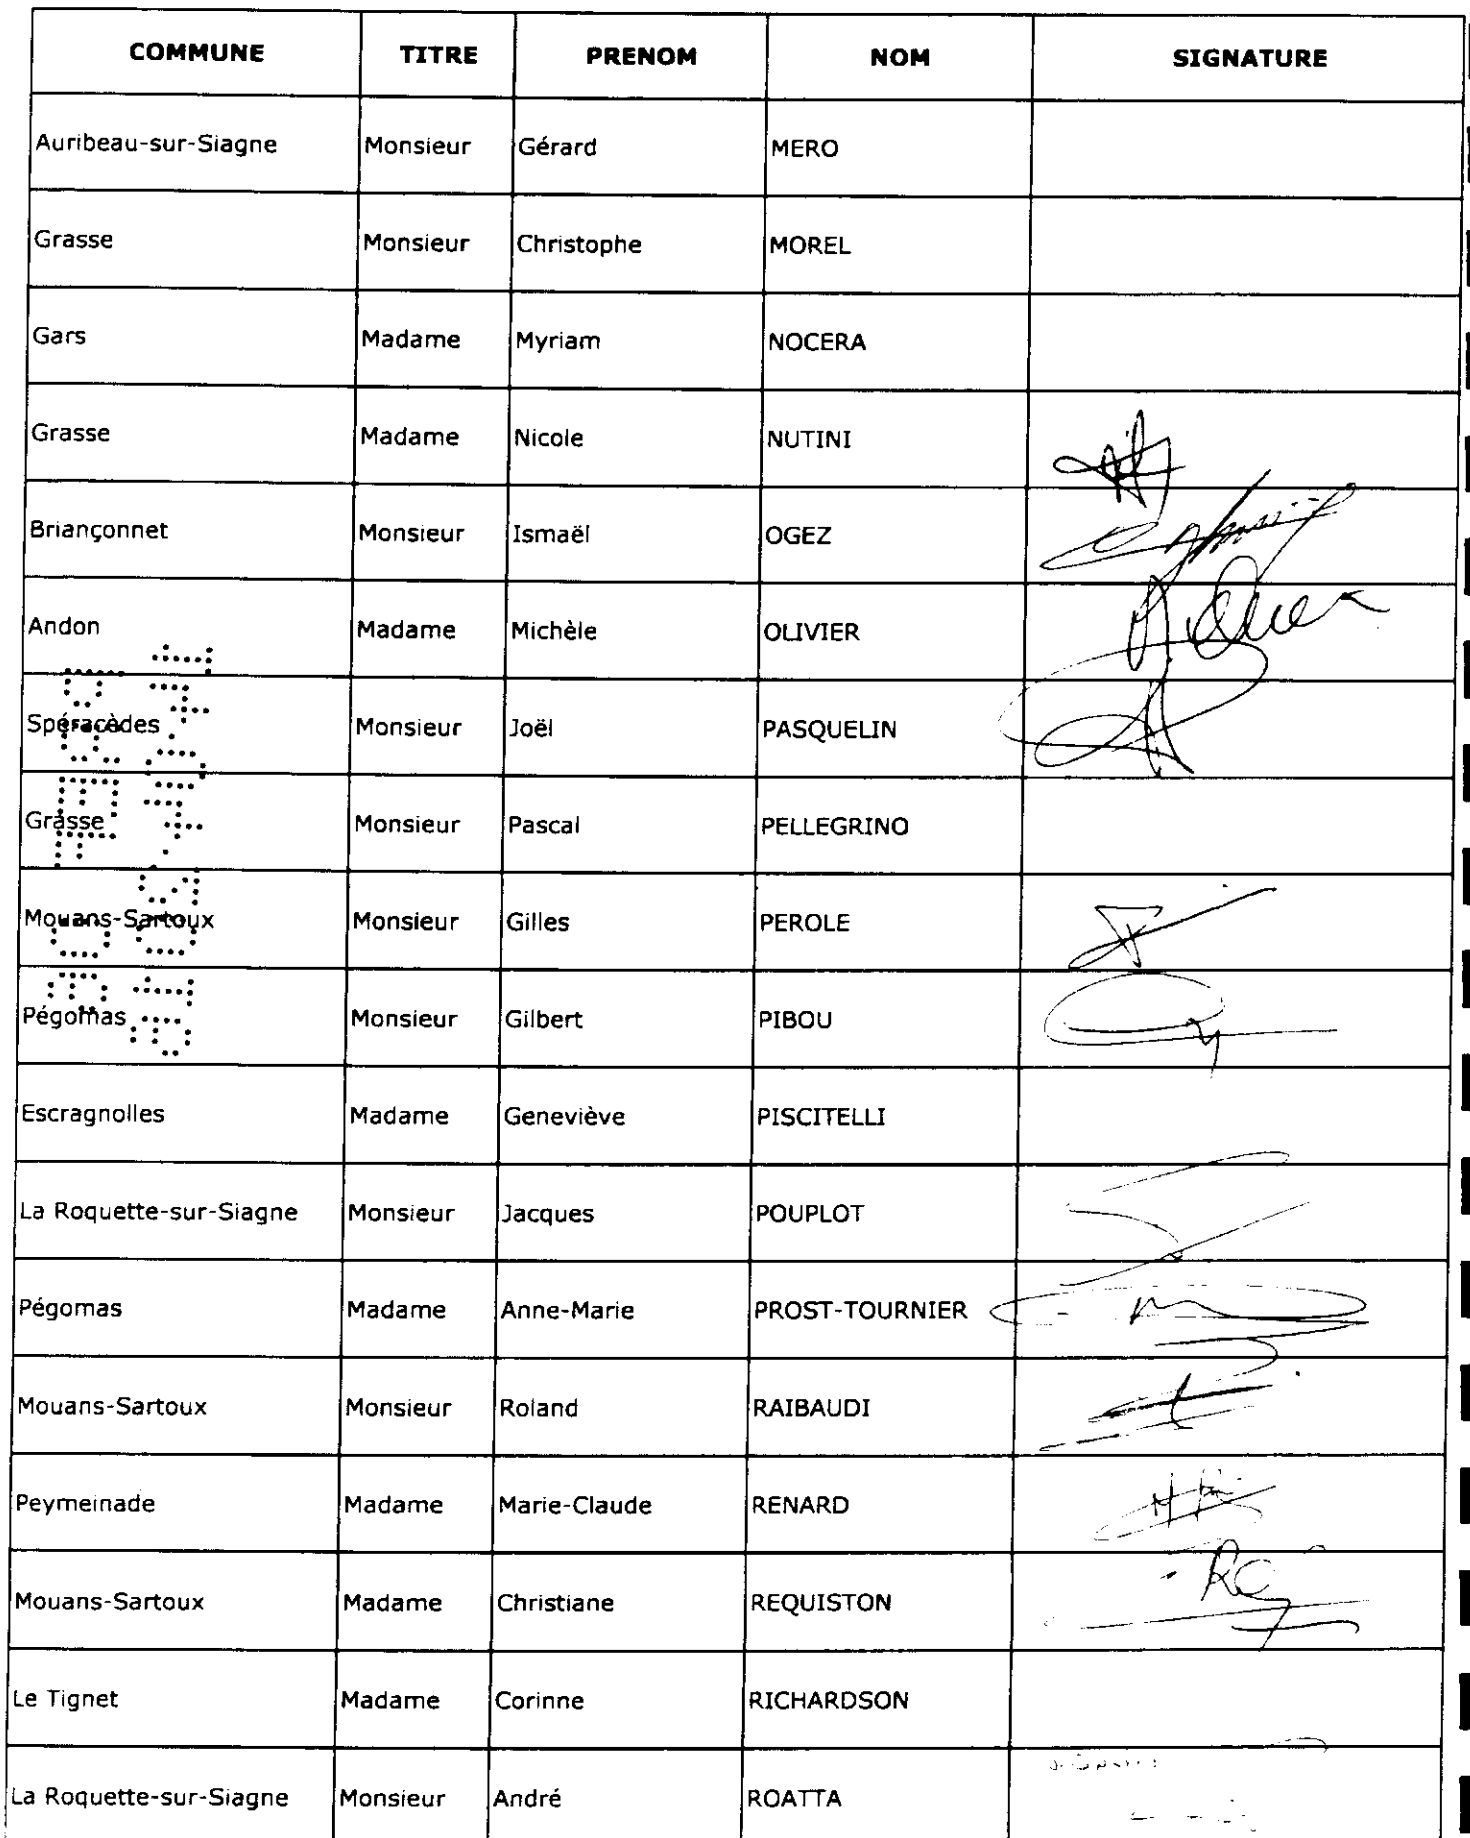 COMMUNE TITRE PRENOM NOM SIGNATURE
Auribeau-sur-Siagne Monsieur Gérard MERO
Grasse Monsieur Christophe MOREL
Gars Madame Myriam NOCERA
Grasse Madame Nicole NUTINI
Briançonnet Monsieur Ismaël OGEZ
Andon Madame Michèle OLIVIER
Spéracèdes Monsieur Joël PASQUELIN
Grasse Monsieur Pascal PELLEGRINO
Mouans-Sartoux Monsieur Gilles PEROLE
Pégomas Monsieur Gilbert PIBOU
Escragnolles Madame Geneviève PISCITELLI
La Roquette-sur-Siagne Monsieur Jacques POUPLOT
Pégomas Madame Anne-Marie PROST-TOURNIER
Mouans-Sartoux Monsieur Roland RAIBAUDI
Peymeinade Madame Marie-Claude RENARD
Mouans-Sartoux Madame Christiane REQUISTON
Le Tignet Madame Corinne RICHARDSON
La Roquette-sur-Siagne Monsieur André ROATTA